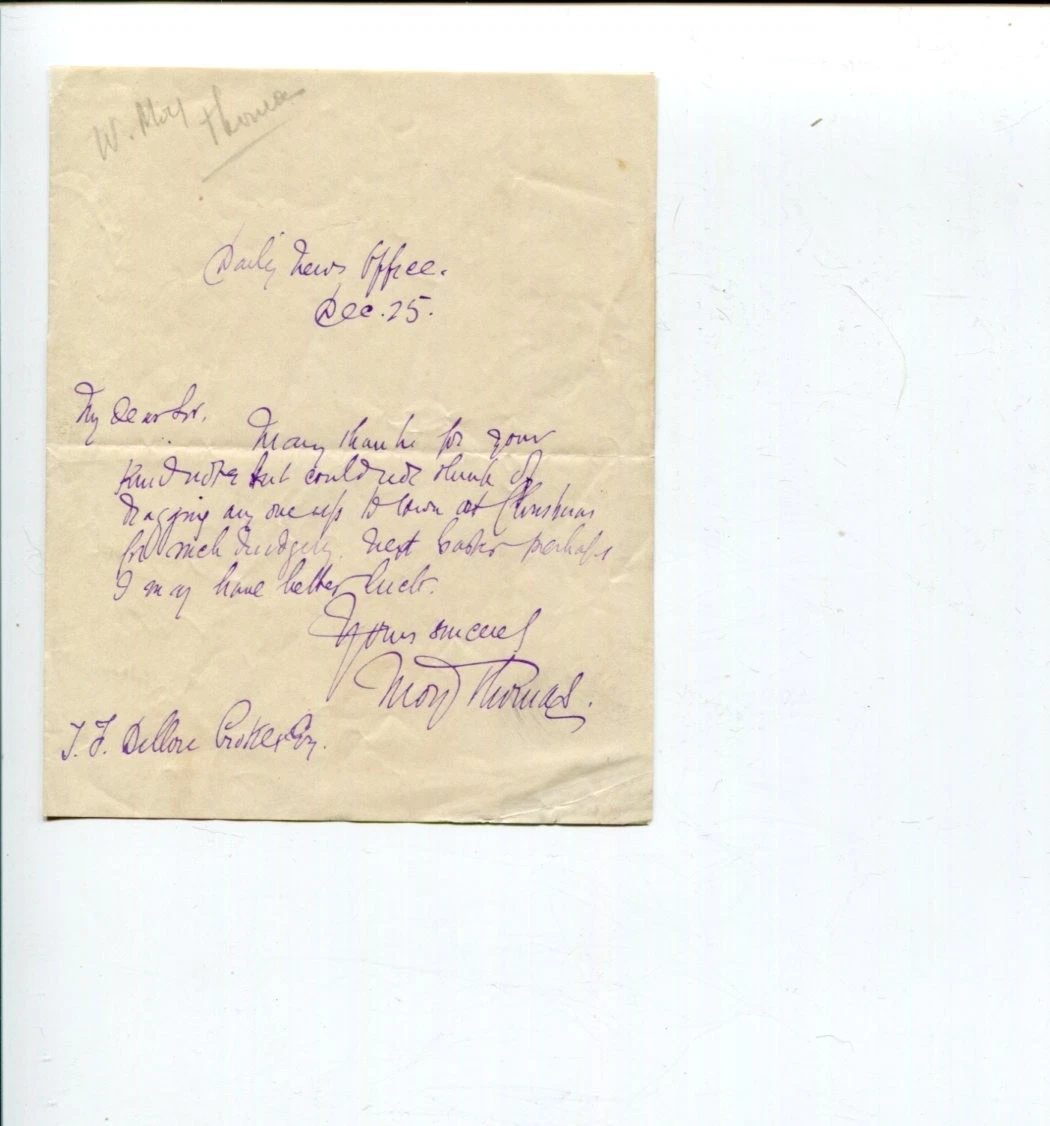 W. Moy
Thomas
Daily News Office.
Dec. 25.
My dear Sir.
Many thanks for your
kind note but could not think of
dragging any one up to town at Christmas
for such drudgery. Next Easter perhaps
I may have better luck.
Yours sincerely
Moy Thomas.
T. F. Dillon Croker Esq.